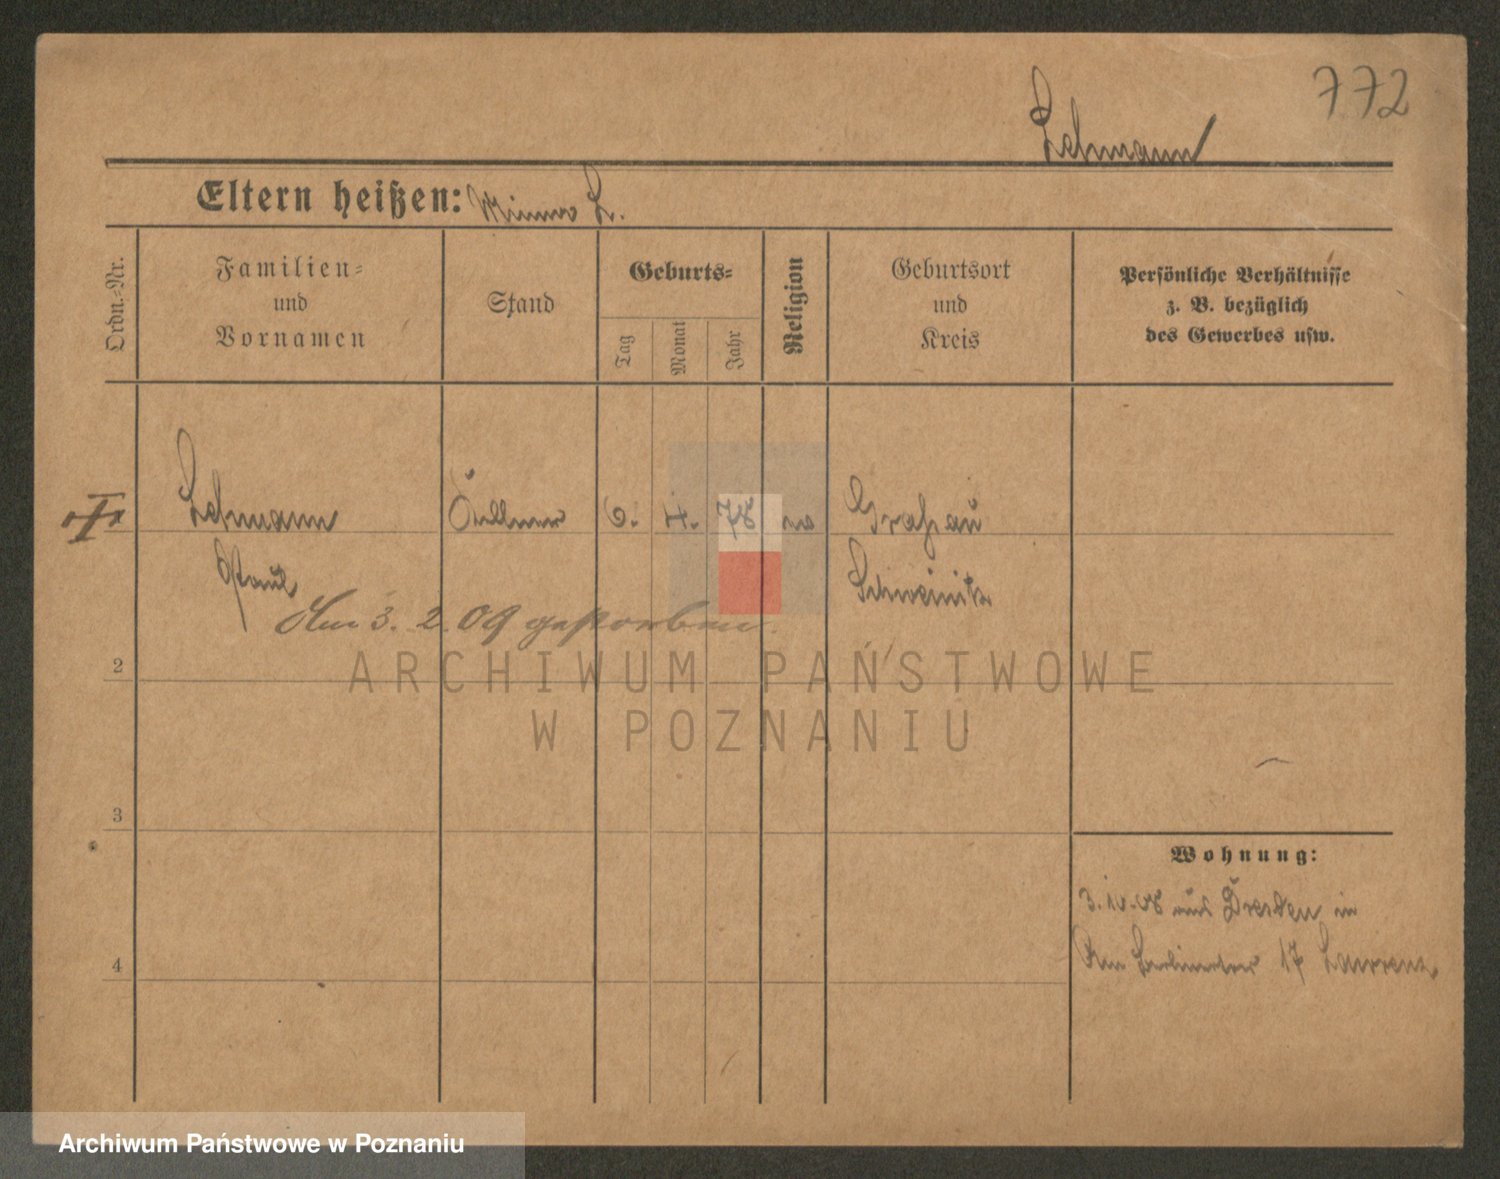 772
Lehmann
Eltern heißen: L.
Ordn.-Nr.
Familien- und Vornamen
Stand
Geburts-
Tag
Monat
Jahr
Religion
Geburtsort und Kreis
Persönliche Verhältnisse
z. B. bezüglich
des Gewerbes usw.
Lehmann 6. 4. 78
Paul Schweinitz
Am 3. 2. 09 gestorben.
2
3
4
Wohnung:
3.10.08 aus Dresden in
Am Berlinertor 17
ARCHIWUM PAŃSTWOWE
W POZNANIU
Archiwum Państwowe w Poznaniu